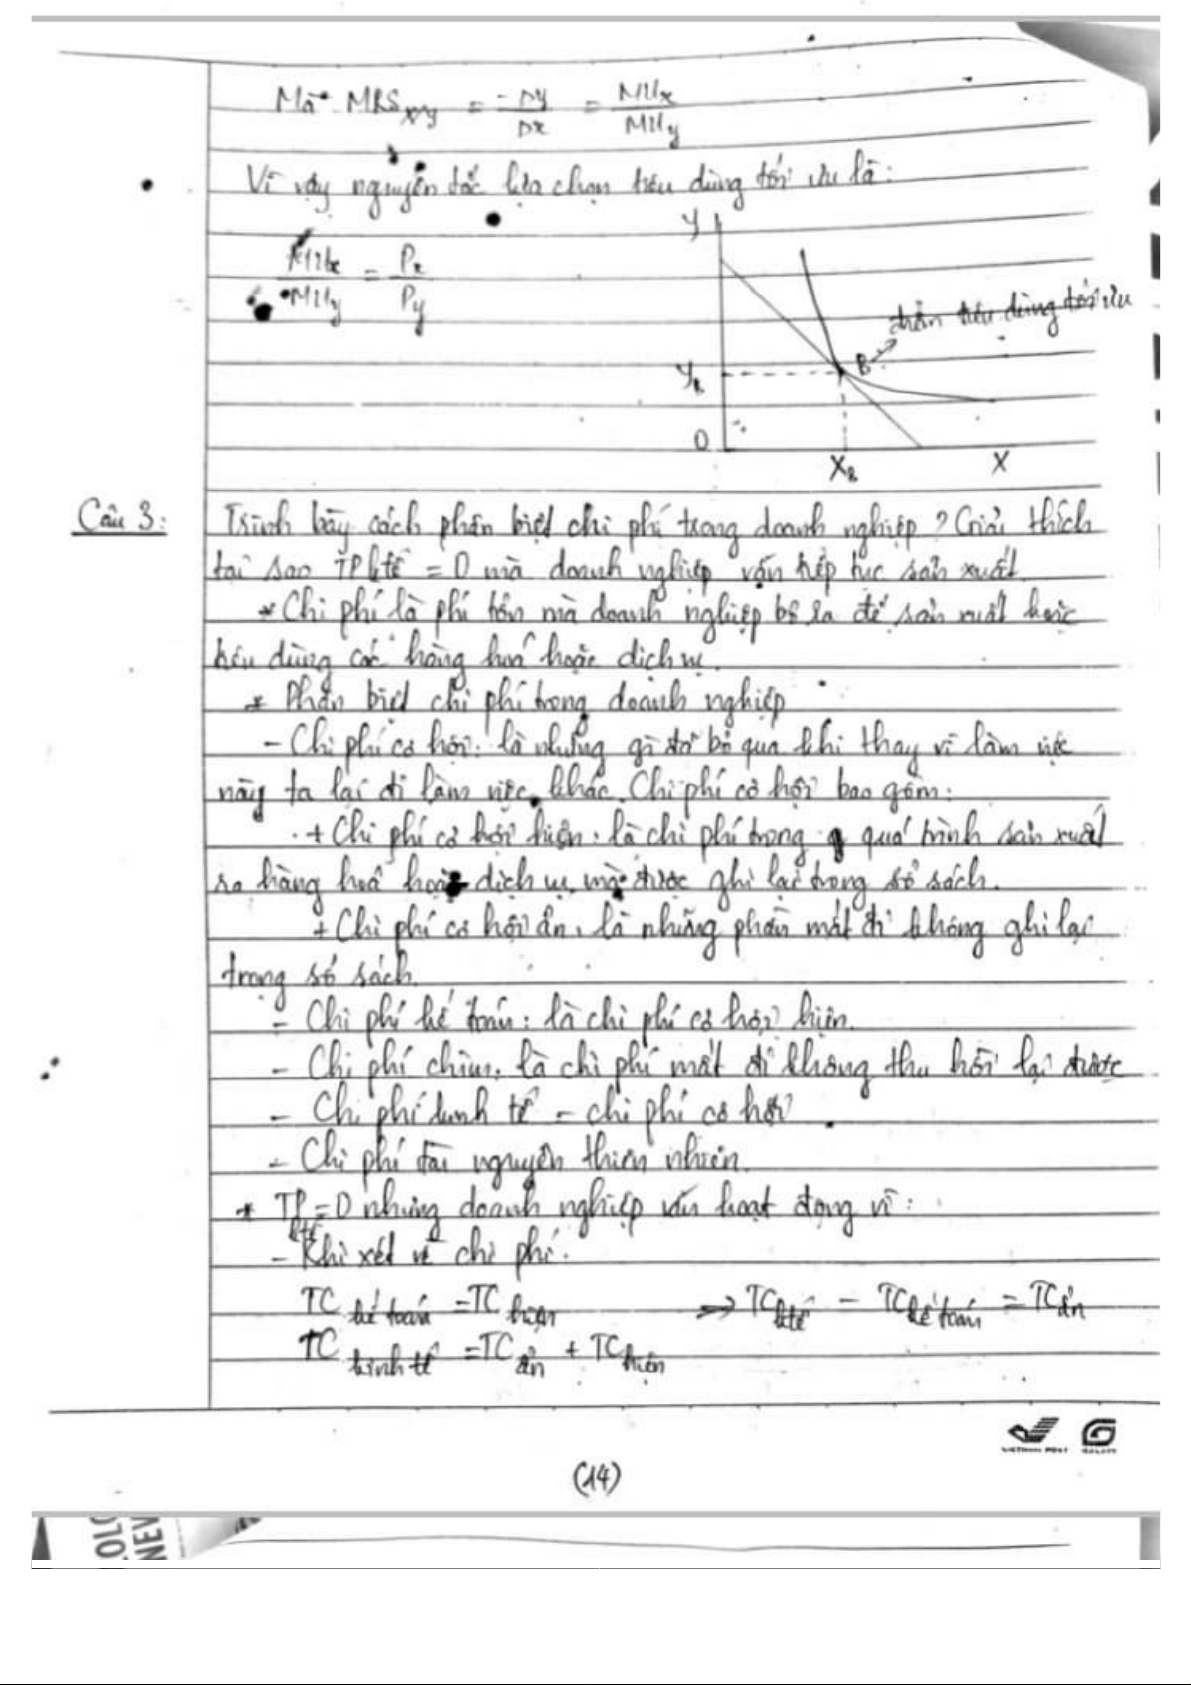 Mà MRSxy = -DY/DX = MUx/MUy
Vì vậy nguyên tắc lựa chọn tiêu dùng tối ưu là:
MUx/MUy = Px/Py
Y
điểm tiêu dùng tối ưu
B
YB
O
XB
X
Câu 3:
Trình bày cách phân biệt chi phí trong doanh nghiệp? Giải thích
tại sao TP ktế = 0 mà doanh nghiệp vẫn tiếp tục sản xuất
* Chi phí là phí tổn mà doanh nghiệp bỏ ra để sản xuất hoặc
tiêu dùng các hàng hoá hoặc dịch vụ.
* Phân biệt chi phí trong doanh nghiệp
- Chi phí cơ hội: là những gì đã bỏ qua khi thay vì làm việc
này ta lại đi làm việc khác. Chi phí cơ hội bao gồm:
+ Chi phí cơ hội hiện: là chi phí trong quá trình sản xuất
ra hàng hoá hoặc dịch vụ mà được ghi lại trong sổ sách.
+ Chi phí cơ hội ẩn: là những phần mất đi không ghi lại
trong sổ sách.
- Chi phí kế toán: là chi phí cơ hội hiện.
- Chi phí chìm: là chi phí mất đi không thu hồi lại được
- Chi phí kinh tế = chi phí cơ hội
- Chi phí tài nguyên thiên nhiên.
* TP ktế = 0 nhưng doanh nghiệp vẫn hoạt động vì:
- Khi xét về chi phí:
TC kế toán = TC hiện => TC ktế - TC kế toán = TC ẩn
TC kinh tế = TC ẩn + TC hiện
VIETNAM POST
(14)